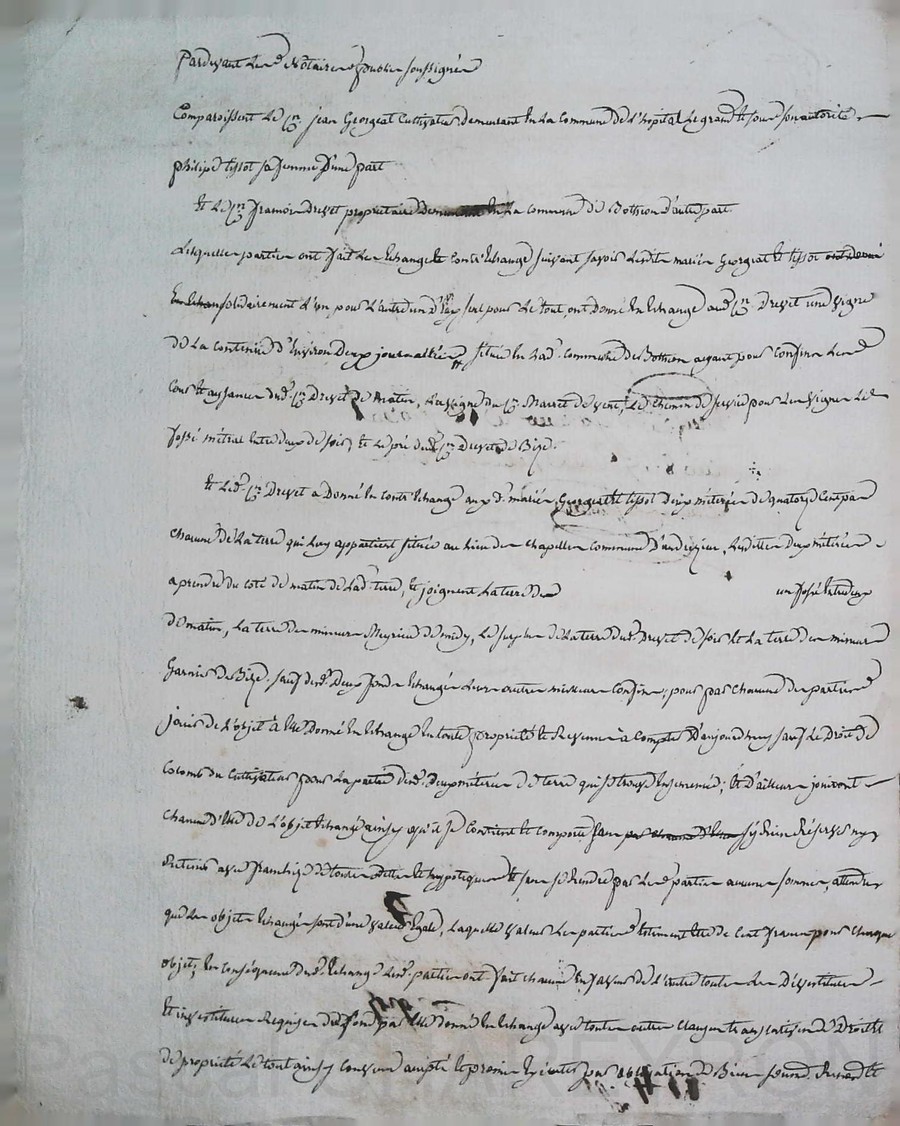 Pardevant Les Notaires publics soussignés
Comparoissent Le Cen jean Georgeat Cultivateur demeurant En La Commune de L'hopital Le grand Et sous son autorité
philipe tissot sa femme d'une part
Et Le Cen dreuet propriétaire En La commune de Bothéon d'autre part
Lesquelles parties ont fait Les Echange Et Contr'Echange suivant savoir Lesdits mariés Georgeat Et tissot
solidairement L'un pour L'autre un d'eux seul pour Le tout, ont donné En Echange aud Cen Dreuet une vigne
de La contenue d'Environ Deux journalées située En Lad. Commune de Botheon ayant pour confins Les
dud. Cen Dreuet de matin, La vigne du Cen de vent, Le chemin de service pour Les vignes Et Le
fossé mitral Entre deux de soir, Et Le pré dud Cen dreuet de Bize.
Et Led. Cen Dreuet a Donné En contr'Echange aux d. mariés Georgeat Et tissot Deux méterées de quatorze Cent pas
chacune de La terre qui Luy appartient située au Lieu des chapelles commune D'andrezieux, Lesdittes Deux méterées
a prendre du coté de matin de Lad. terre, Et joignent La terre de un fossé Entre deux
de matin, La terre des mineurs Meyrieu de midy, Le surplus de La terre dud. Dreuet de soir Et La terre des mineurs
Garnier de Bize. sauf desd. Deux fonds Echangés Leurs autres meilleurs Confins, pour par chacune des parties
jouir de L'objet à Elle Donné En Echange En toute propriété Et Revenus à compter D'aujourd'huy sauf Le Droit de
Colomb du Cultivateur pour La partie desd. Deux méterées de terre qui se trouve Ensemencée; Et D'ailleurs jouiront
chacune d'Elle de L'objet Echangé ainsy qu'il se Contient Et comporte sans s'y Rien Réserver ny
Retenir avec franchise de toutes dettes Et hypotèques Et sans se Rendre par Les parties aucunes sommes, attendu
que Les objets Echangés sont d'une valeur Egale, Laquelle valeur Les parties Estiment Etre de Cent francs pour chaque
objet; En Conséquence dud. Echange Lesd. parties ont fait chacune En faveur de L'autre toutes Les Dévestitures
Et investitures Requises du fond par Elle donné En Echange avec toutes autres Clauses translatives de Droits Et
de propriété Le tout ainsy convenu accepté Et promis Exécuter par obligation de Biens